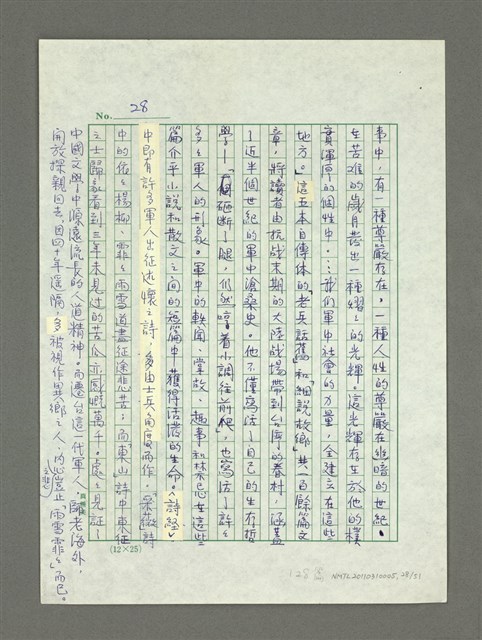 No. 28
事中，有一種尊嚴存在，一種人性的尊嚴在幽暗的世紀、
在苦難的歲月發出一種熠熠的光輝。這光輝存在於他的樸
實渾厚的個性中……我們軍中社會的力量，全建立在這些
地方。」這五本自傳體的「老兵話舊」和「細說故鄉」共一百餘篇文
章，將讀者由抗戰末期的大陸戰場帶到台灣的眷村，涵蓋
了近半個世紀的軍中滄桑史。他不僅寫活了自己的生存哲
學——「砸斷了腿，仍然哼着小調往前爬」，也寫活了許許
多多軍人的形象。軍中的軼聞、掌故、趣事和禁忌在這些
篇介乎小說和散文之間的短篇中，獲得活潑的生命。《詩經》
中即有許多軍人出征述懷之詩，多由士兵角度而作。采薇詩
中的依依楊柳、霏霏雨雪道盡征途悲苦；而東山詩中東征
之士歸家看到三年未見過的苦瓜亦感慨萬千。處處見証了
中國文學中順遠流長的人道精神。而遷台這一代軍人，歸老海外，
開放探親回去，因四十年遙隔，多被視作異鄉之人，內心之悲豈止「雨雪霏霏」而已。
(12×25)
128篇
NMTL20110310005, 28/51